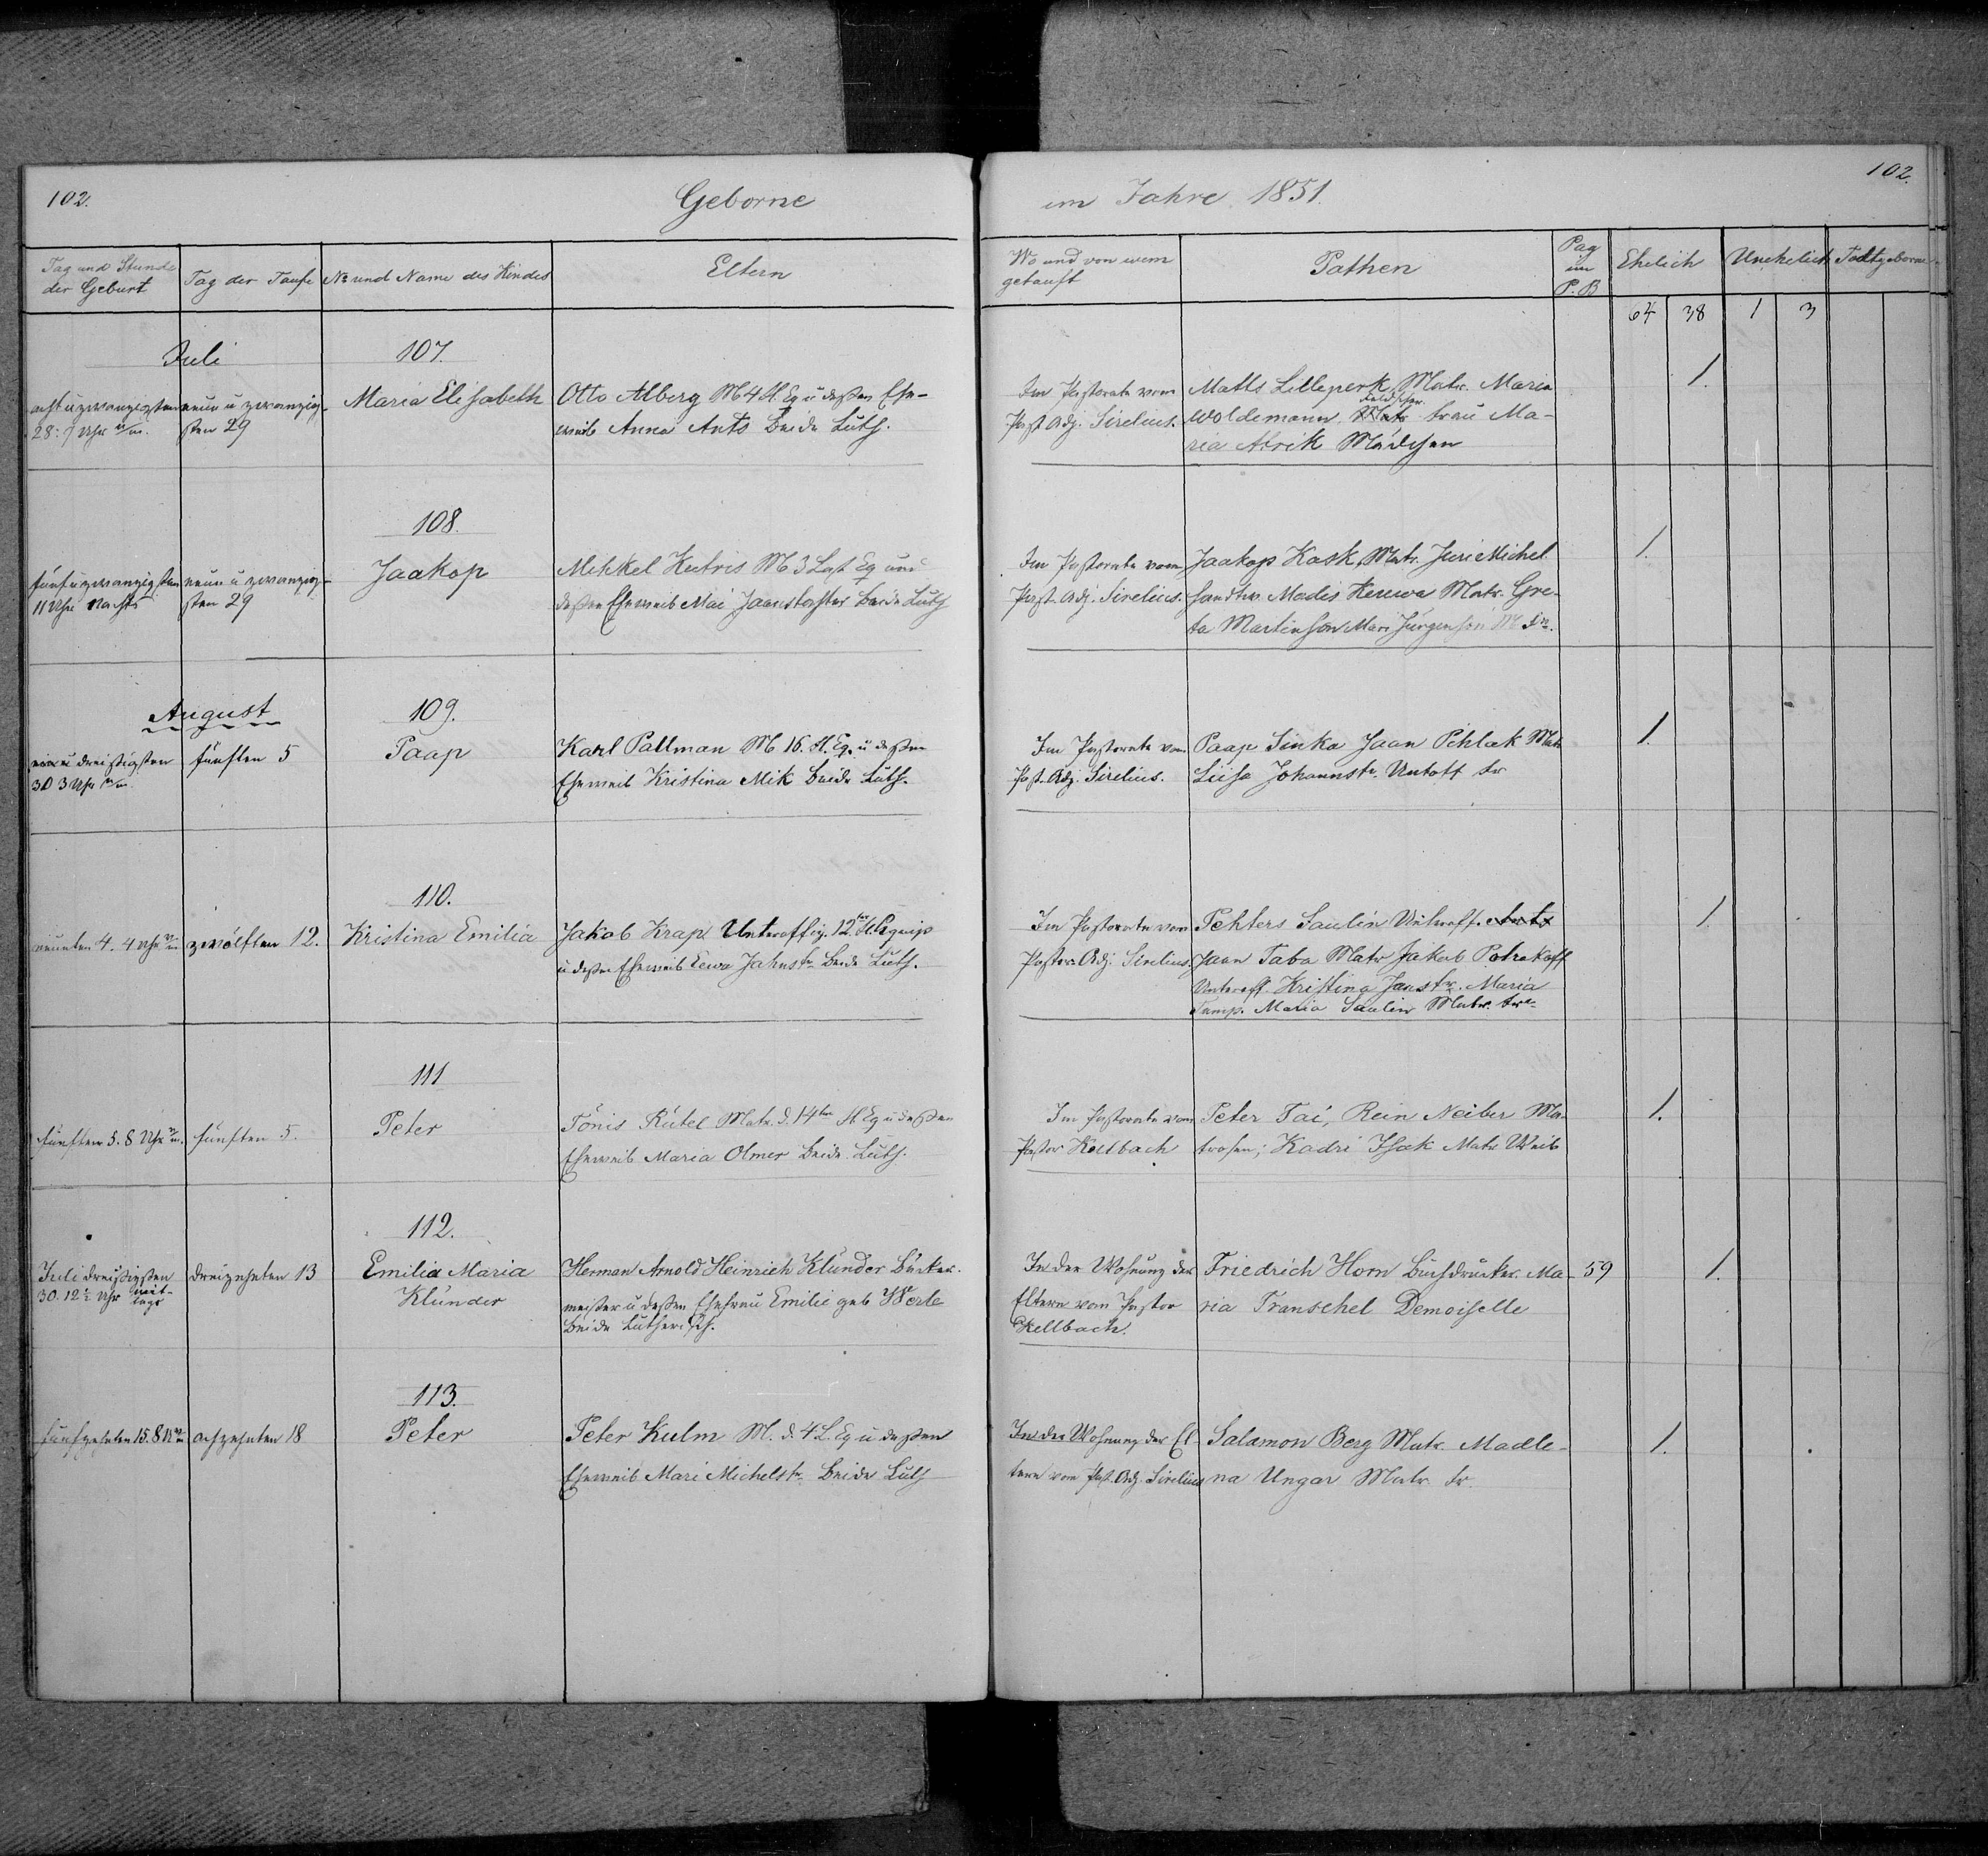 102.
Geborne
im Jahre 1851.
102.
Tag und Stunde
der Geburt
Tag der Taufe
No und Name des Kindes
Eltern
Wo und von wem
getauft
Pathen
Pag
im
P. B
Ehelich
Unehelich
Todtgeborne
64 38 1 3
Juli
107.
acht u zwanzigsten
28. 7 Uhr
neun u zwanzig-
sten 29
Maria Elisabeth
Otto Alberg M 4 Fl. Eq u deßen Ehe-
weib Anna Ants Beide Luth.
Im Pastorate vom
Past. Adj. Sirelius.
Matls Lilleperk Matr. Maria
Feldscher.
Woldemann frau Ma-
ria Adrik Mädchen
1.
108.
fünf u zwanzigsten
11 Uhr Nachts
neun u zwanzig-
sten 29
Jaakop
Mihkel Kutris M 3 Last Eq und
deßen Eheweib Mai Jaanstochter beide Luth
Im Pastorate vom
Past. Adj. Sirelius.
Jaakop Kask, Matr. Juri Michel
Madis Matr. Gre-
ta Martinson Mari Jürgenson M
1.
August
109.
ein u dreißigsten
30 3 Uhr
fünften 5
Paap
Karl Pallman M 16. Fl. Eq. u deßen
Eheweib Kristina Mik beide Luth.
Im Pastorate vom
Past. Adj. Sirelius.
Paap Sinka Jaan Pihlak Matr
Liisa Johannstr. Untoff fr
1.
110.
4. 4 Uhr
zwölften 12.
Kristina Emilia
Jakob Krap Unteroffiz. 12ter Fl. Equip
u deßen Eheweib Eewa Jahnstr. Beide Luth.
Im Pastorate vom
Pastor Adj. Sirelius.
Pehters Saulin Unteroff.
Jaan Taba Matr Jakob Potrakoff
Unteroff. Kristina Janstr. Maria
Tamp. Maria Saulin Matr. fr
1.
111
fünften 5. 8 Uhr
fünften 5.
Peter
Tönis Rütel Matr. d. 14ten Fl Eq u deßen
Eheweib Maria Olmer beide Luth.
Im Pastorate vom
Pastor Kellbach
Peter Tai, Rein Neiber Ma-
trosen; Kadri Isak Matr. Weib
1.
112.
Juli dreißigsten
30. 12½ Uhr mit-
tags
dreizehnten 13
Emilia Maria
Klünder
Herman Arnold Heinrich Klünder Bäcker-
meister u deßen Ehefrau Emilie geb Werle
Beide Lutherisch.
In der Wohnung der
Eltern vom Pastor
Kellbach.
Friedrich Horn Buchdrucker. Ma-
ria Transehel Demoiselle
59
1.
113.
fünfzehnten 15. 8 U
achzehnten 18
Peter
Peter Kulm M. d. 4 L. Eq u deßen
Eheweib Mari Michelstr. Beide Luth
In der Wohnung der El-
tern vom Past. Adj. Sirelius
Salamon Berg Matr. Madle-
na Ungar Matr. fr.
1.